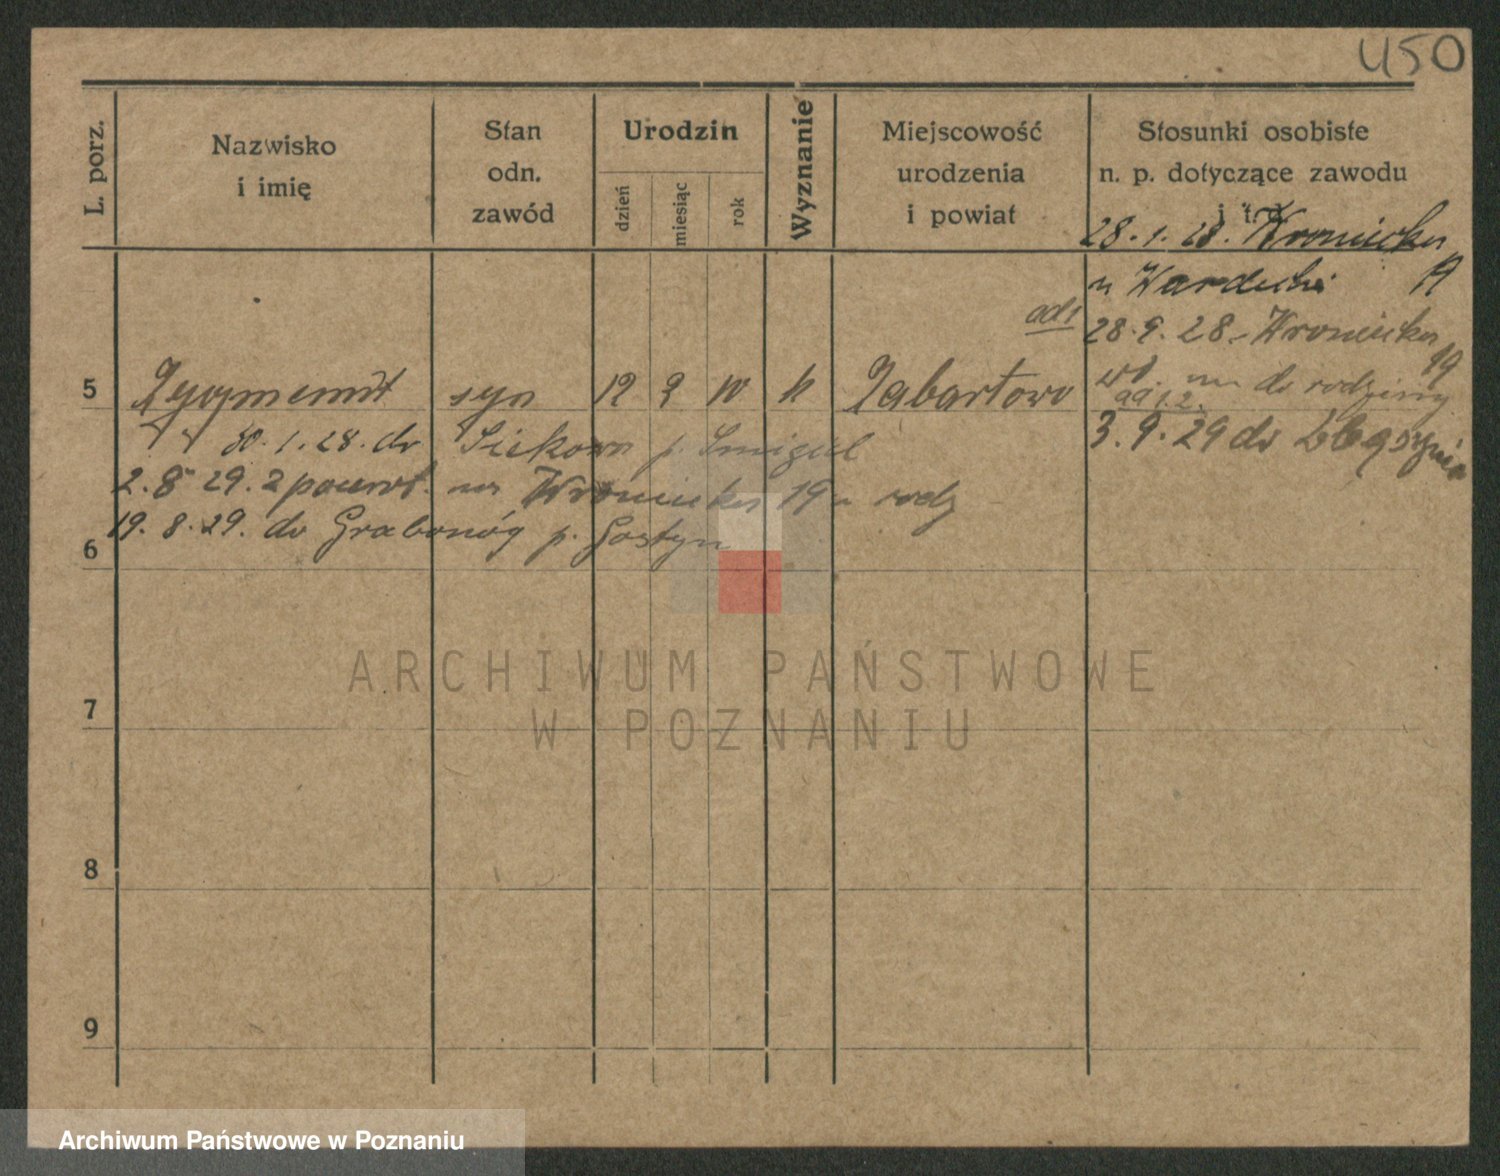 450
L. porz.
Nazwisko
i imię
Stan
odn.
zawód
Urodzin
dzień
miesiąc
rok
Wyznanie
Miejscowość
urodzenia
i powiat
Stosunki osobiste
n. p. dotyczące zawodu
i t. d.
28.1.28. Wroniecka
19
u
ad 1
28.9.28 Wroniecka
19
5 Zygmunt syn 12 9 10 k Zabartowo
do rodziny
30.1.28. do Siekowa p. Śmigiel
3.9.29 do
2.8 29. 2 powrot. na Wroniecka 19 u rodz
19.8.29. do Grabonóg p. Gostyn
6
7
8
9
ARCHIWUM PAŃSTWOWE
W POZNANIU
Archiwum Państwowe w Poznaniu